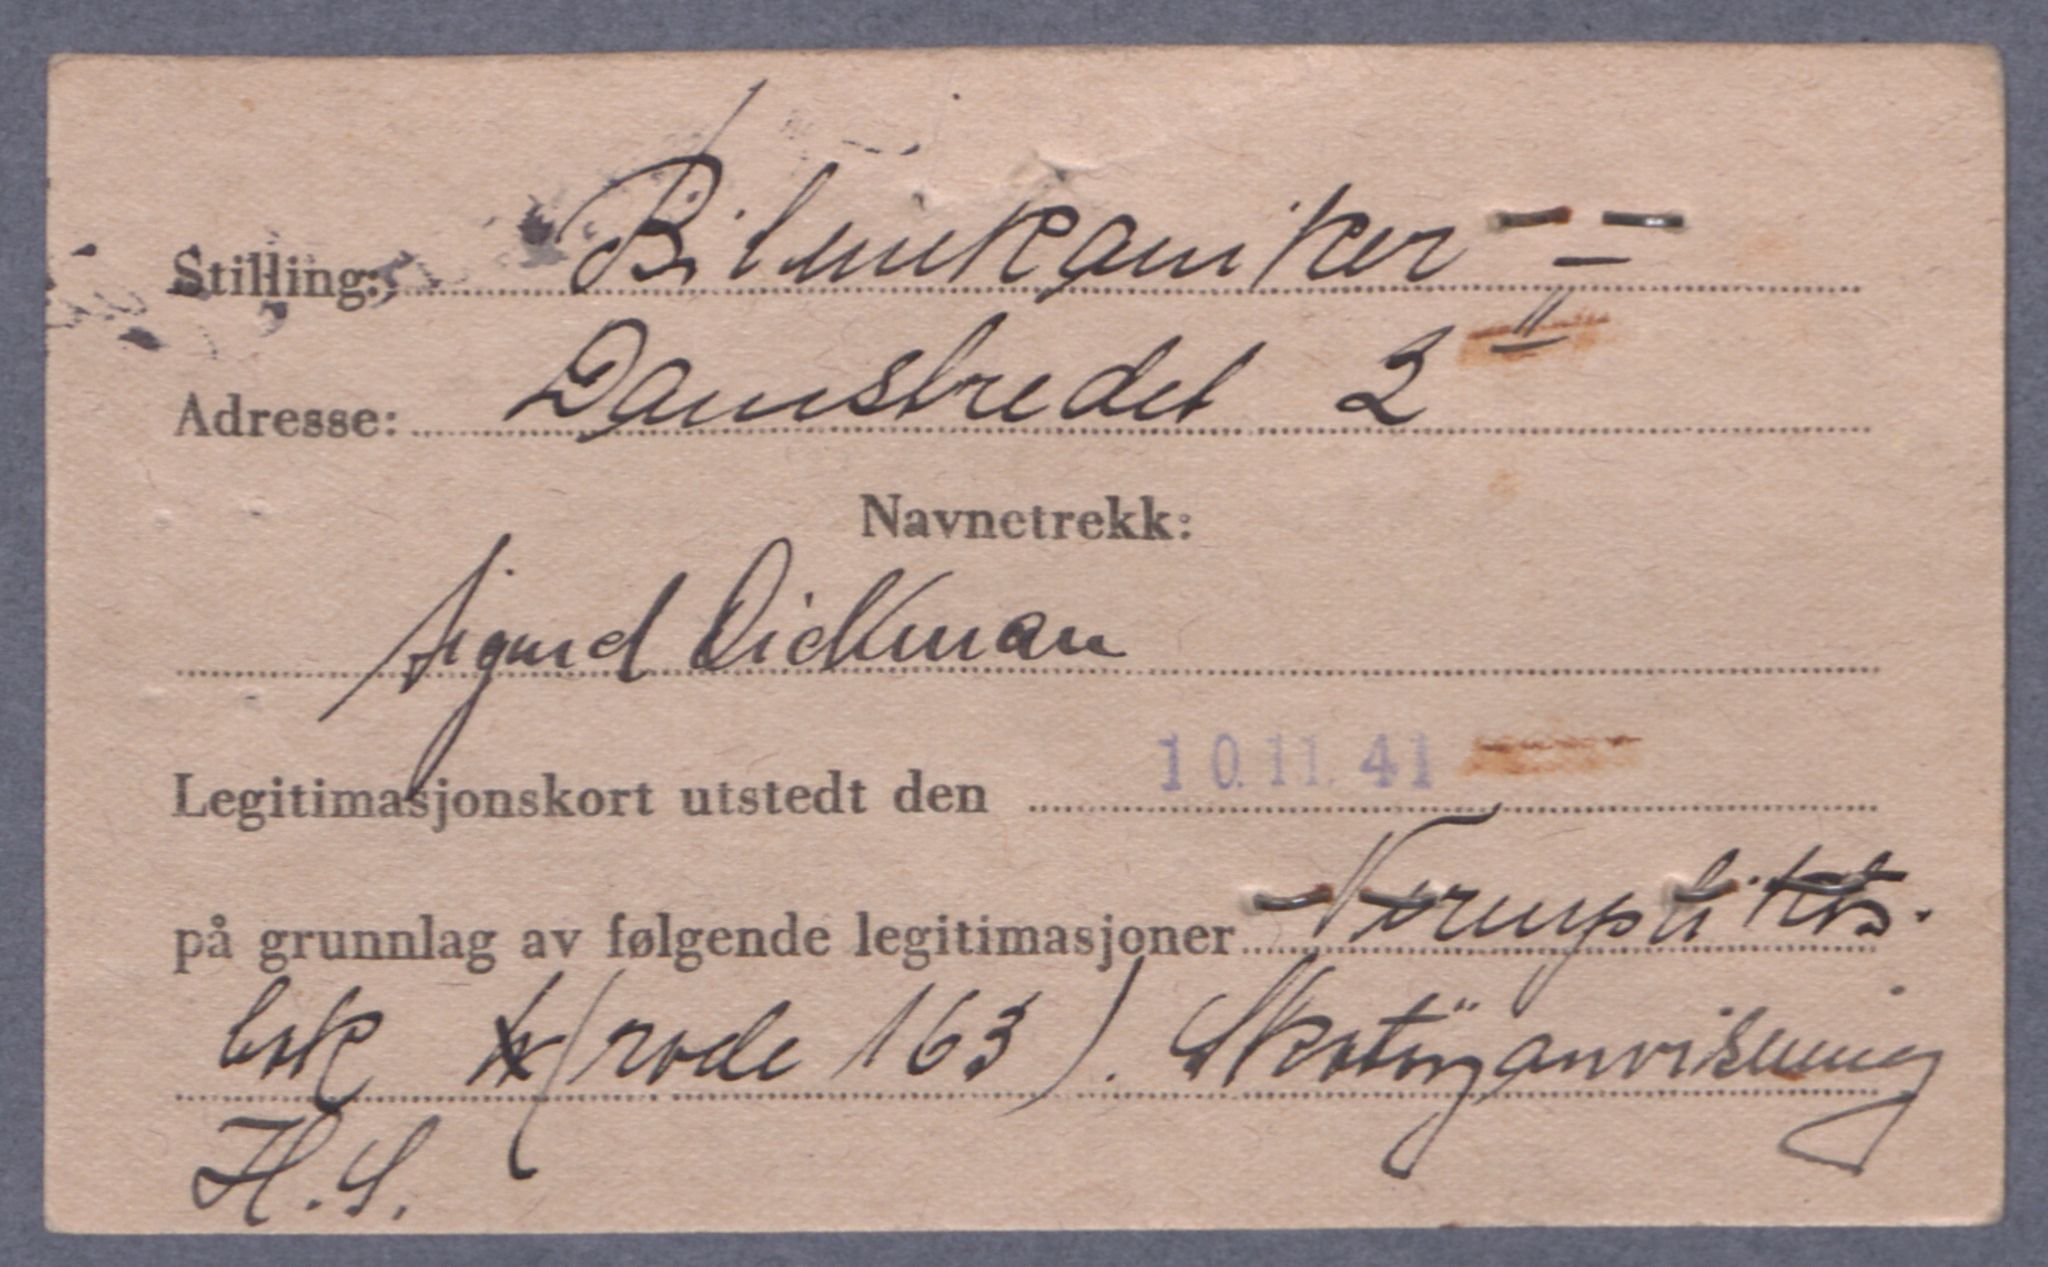 Stilling: Bilmekaniker
Adresse: Damstredet 2 II
Navnetrekk:
Sigurd Dickman
Legitimasjonskort utstedt den 10.11.41
på grunnlag av følgende legitimasjoner Vernplikts.
bok (rode 163). Skotöyanvisning
H.S.